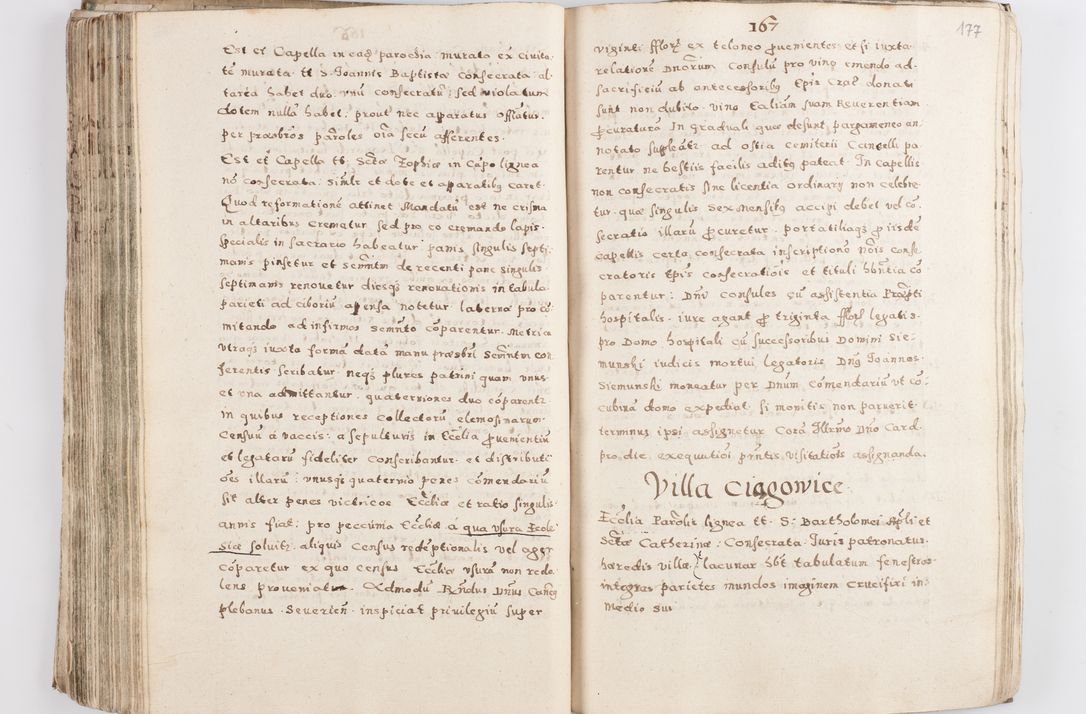 Est et Capella in eadẽ parochia murata ex civita-
te murata tt. S. Joannis Baptistæ Consecrata: al-
taria habet duo vnũ consecratũ: sed violatum
dotem nullã habet: prout nec apparatus offĩatus.
per præsbr̃os parõles oĩa secũ afferentes.
Est et Capella tt. Sctæ Zophiæ in Cãpo lignea
nõ consecrata: simlr et dote et apparatibq caret.
Quod reformationẽ attinet Mandatũ est ne crisma
in altaribus cremetur sed pro eo cremando lapis
specialis in sacrario habeatur: panis singulis septi-
manis pinsetur et Semñtm de recenti pane singulis
septimanis renouetur diesqз renouationis in tabula
parieti ad ciboriũ appensa notetur. laterna pro cõ-
mitando ad infirmos Semñto cõparentur. Metrica
vtraqз iuxta formã datã manu præsbri Semñtm con-
ferentis scribatur. neqз plures patrini quam vnus
et vna admittantur. quaterniones duo cõparentr
in quibus receptiones collectarũ elemosinarum
Censuũ à vaccis: a sepulturis in Ecclia prouenientiũ
et legatarũ fideliter conscribantur. et distributi-
oẽs illarũ: vnusqз quaternio penes cõmendariũ
sit alter penes victricos Eccliæ et ratio singulis
annis fiat: pro peccunia Eccliæ à qua vsura Eccle-
siæ soluitr aliquis Census redẽptionalis vel ager
cõparetur ex quo census Eccliæ vsurã non redo-
lens proueniat. Admodũ Rñdus Dñus Cancq
plebanus Severieñ. inspiciat privilegiũ super
167
177
viginti fflor ex teloneo prouenientes et si iuxta
relationẽ Dnorum Consulũ pro vino emendo ad
sacrificiũ ab antecessoribq Epis Crac donati
sunt non dubito vino Ealiam suam Reuerentiam
procuraturã In graduali quæ desunt, pargameneo an-
notato suppleatr ad ostia cemiterii Cancelli pa-
rentur ne bestiis facilis aditq pateat. In capellis
non consecratis sine licentia ordinarÿ non celebre-
tur. quæ singulis sex Mensibq accipi debet vel cõ-
secratio illarũ procuretur. portatiliaqз pro iisdẽ
capellis certo consecrata inscriptionẽ nõis conse-
cratoris Epis consecratiõis et tituli hbñtia cõ-
parentur: Dñi Consules cũ assistentia Præpti
hospitalis. iure agant pro triginta fflor legatis
pro Domo hospitali cũ successoribus Domini Sie-
munski iudicis mortui legatoris. Dnq Joannes
Siemunski moneatur per Dnum cõmendariũ vt cõ-
cubinã domo expediat si monitis non paruerit
terminus ipsi assignetur Corã Illrmo Dño Card.
pro die exequutiõi pñtis visitatiõis assignanda.
Villa Ciągowice
Ecclia Parõlis lignea tt. S: Bartholomei Apli et
Sctæ Catherinæ: Consecrata: Juris patronatus
hæredis villæ: lacunar hbt tabulatum fenestras
integras parietes mundos imaginem Crucifixi in
Medio sui